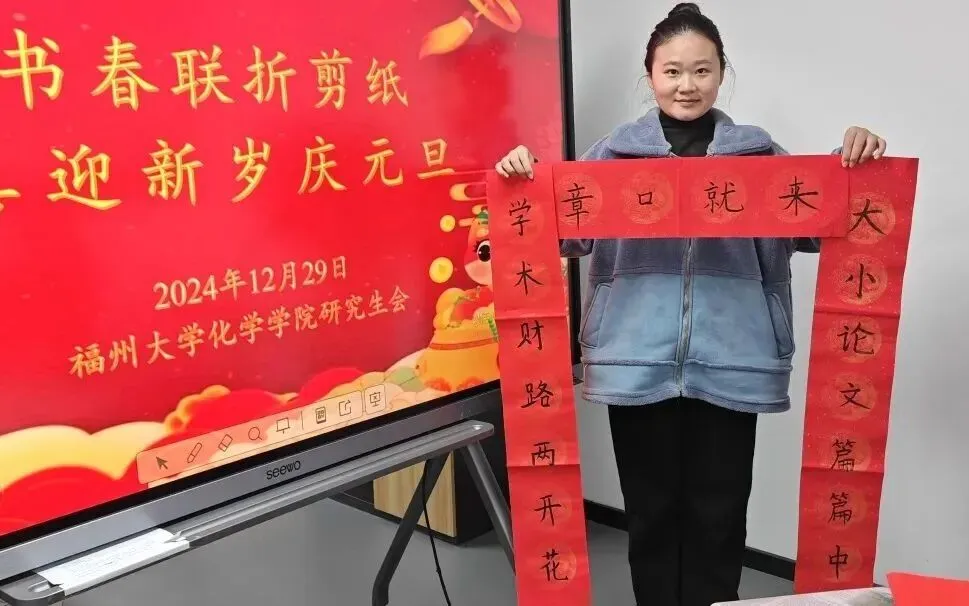 书春联折剪纸
迎新岁庆元旦
2024年12月29日
福州大学化学学院研究生会
seewo
章口就来
大小论文篇篇中
学术财路两开花